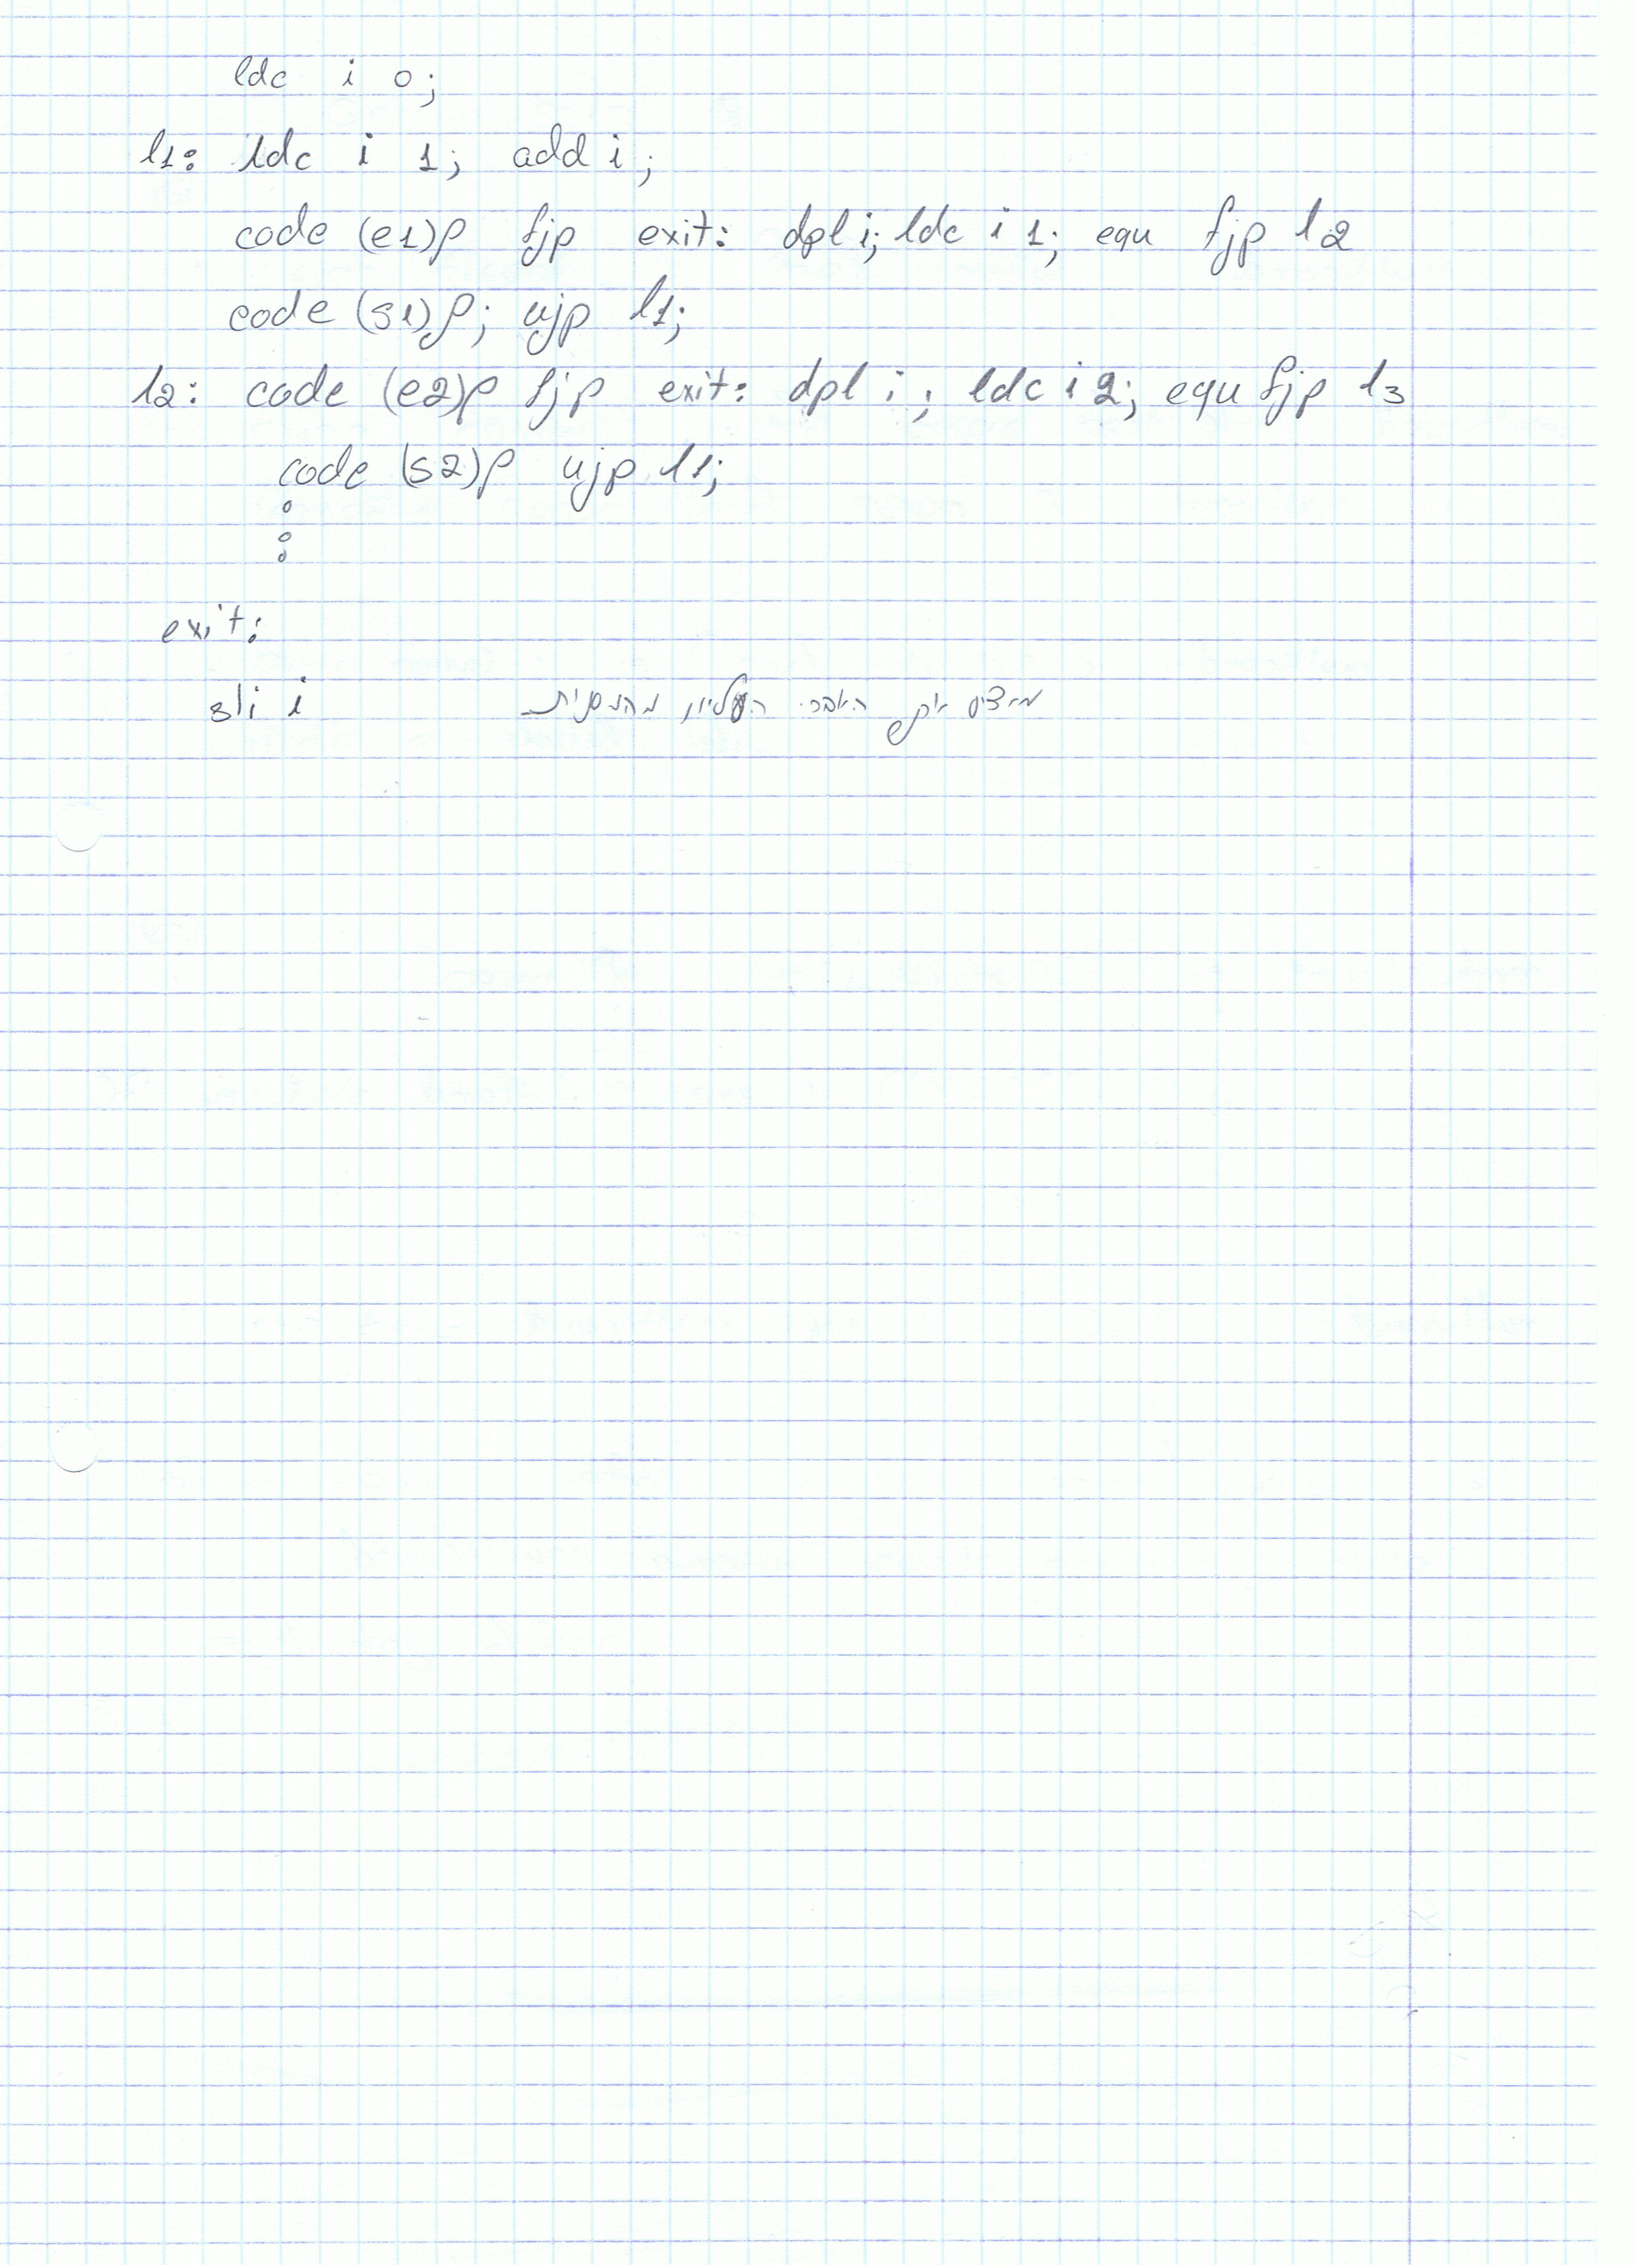 ldc i 0;
l1: ldc i 1; add i;
code (e1)ρ fjp exit: dpl i; ldc i 1; equ fjp l2
code (s1)ρ; ujp l1;
l2: code (e2)ρ fjp exit: dpl i; ldc i 2; equ fjp l3
code (s2)ρ ujp l1;
exit:
sli i מוציא את האבר העליון מהמחסנית